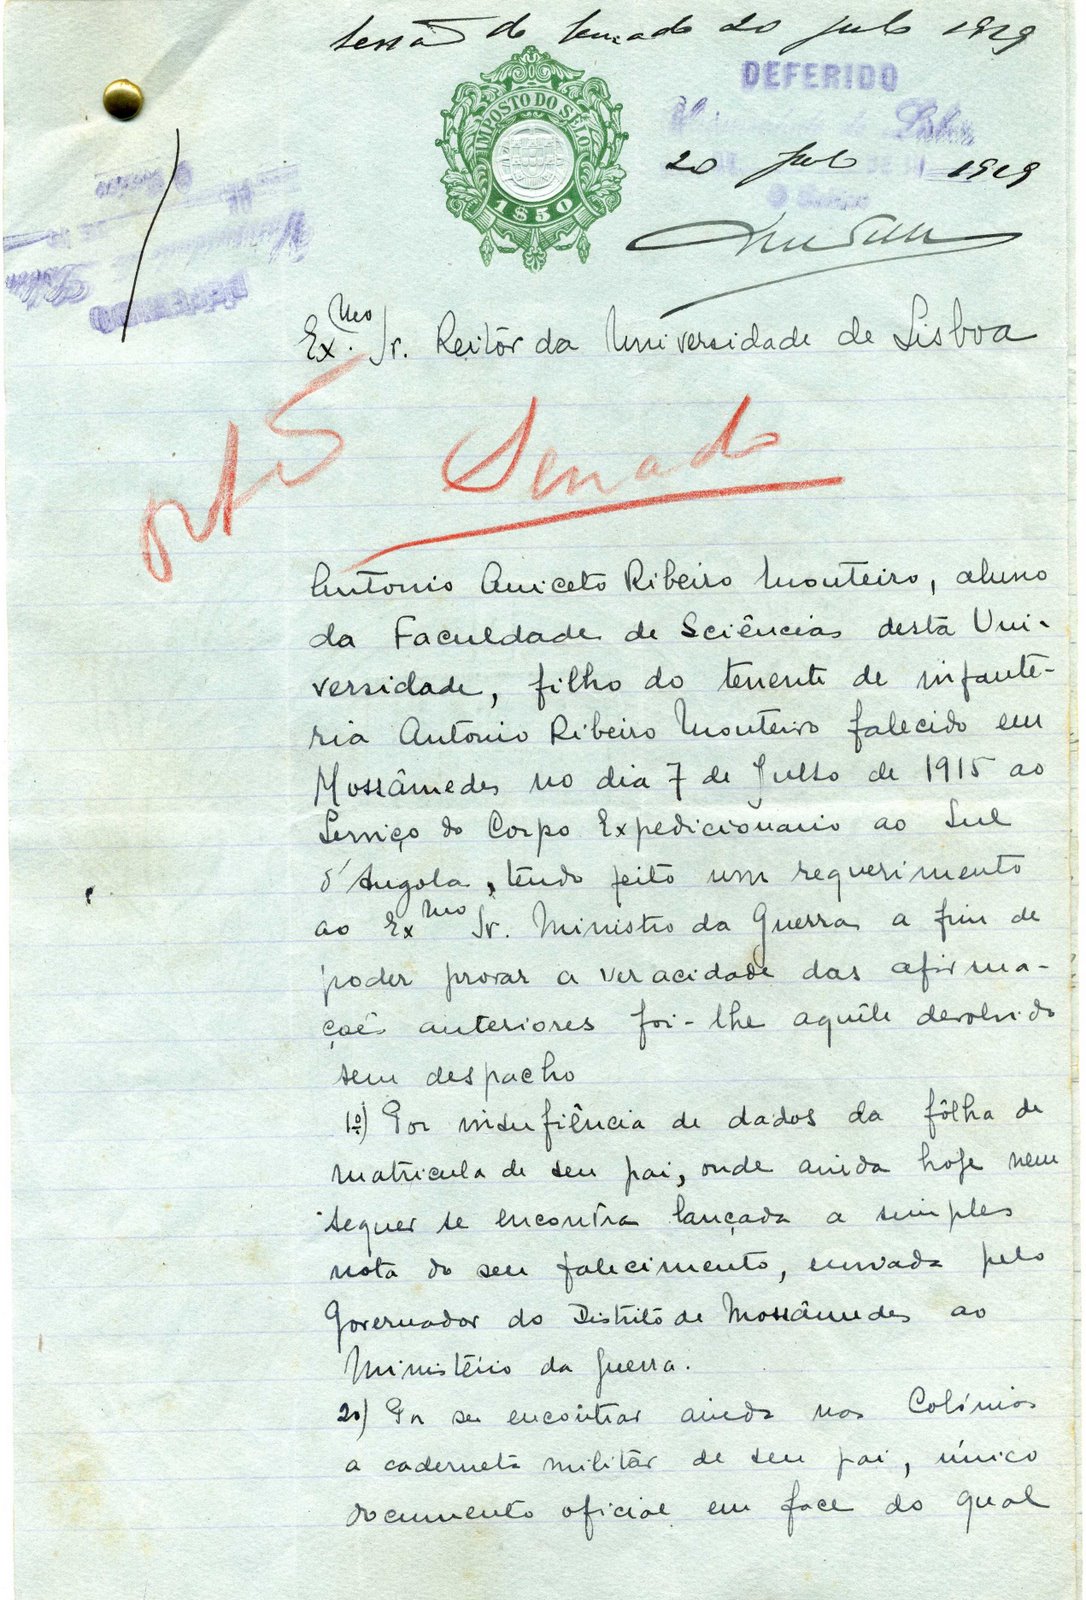 Sessão do Senado 20 Julho 1929
IMPOSTO DO SELO
1$50
DEFERIDO
Universidade de Lisboa
20 Julho 1929
Ex.mo Sr. Reitôr da Universidade de Lisboa
Senado
Antonio Aniceto Ribeiro Monteiro, aluno
da Faculdade de Sciências desta Uni-
versidade, filho do tenente de infante-
ria Antonio Ribeiro Monteiro falecido em
Mossâmedes no dia 7 de Julho de 1915 ao
Serviço do Corpo Expedicionario ao Sul
d'Angola, tendo feito um requerimento
ao Ex.mo Sr. Ministro da Guerra a fim de
poder provar a veracidade das afirma-
çoês anteriores foi-lhe aquêle devolvido
sem despacho
1º) Por insufiência de dados da fôlha de
matricula de seu pai, onde ainda hoje nem
sequer se encontra lançada a simples
nota do seu falecimento, enviada pelo
Governador do Distrito de Mossâmedes ao
Ministério da Guerra.
2º) Por se encontrar ainda nas Colónias
a caderneta militar de seu pai, único
documento oficial em face do qual